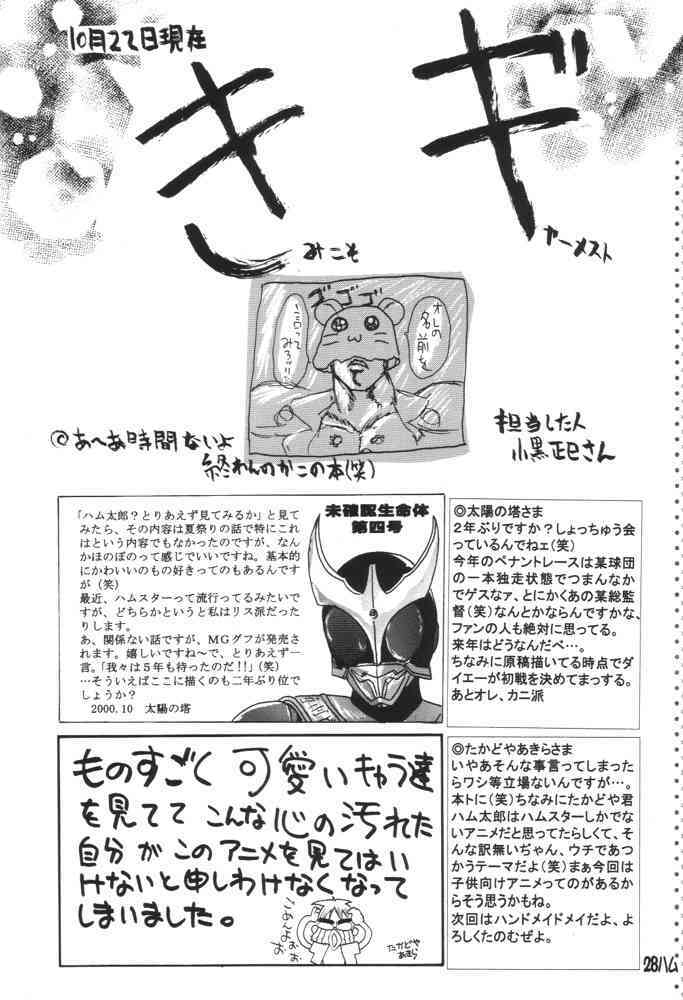 10月22日現在
ギ
ャーメスト
き
みこそ
ゴゴゴゴ
オレの
名前を
言って
みろッ!!
担当した人
小黒正巳さん
◎あ〜あ時間ないよ
終わんのかこの本(笑)
「ハム太郎?とりあえず見てみるか」と見て
みたら、その内容は夏祭りの話で特にこれ
はという内容でもなかったのですが、なん
かほのぼのって感じでいいですね。基本的
にかわいいのもの好きってのもあるんです
が(笑)
最近、ハムスターって流行ってるみたいで
すが、どちらかというと私はリス派だった
りします。
あ、関係ない話ですが、MGグフが発売さ
れます。嬉しいですね〜で、とりあえず一
言。「我々は5年も待ったのだ!!」(笑)
…そういえばここに描くのも二年ぶり位で
しょうか?
2000.10 太陽の塔
未確認生命体
第四号
◎太陽の塔さま
2年ぶりですか?しょっちゅう会
っているんでねェ(笑)
今年のペナントレースは某球団
の一本独走状態でつまんなか
でゲスなァ、とにかくあの某総監
督(笑)なんとかならんですかな、
ファンの人も絶対に思ってる。
来年はどうなんだべ…。
ちなみに原稿描いてる時点でダ
イエーが初戦を決めてまっする。
あとオレ、カニ派
ものすごく可愛いきゅう達
を見てて こんな心の汚れた
自分がこのアニメを見てはい
けないと申しわけなくなって
しまいました。
ごめんよぉぉお
たかどや
あきら
◎たかどやあきらさま
いやあそんな事言ってしまった
らワシ等立場ないんですが…。
本トに(笑)ちなみにたかどや君
ハム太郎はハムスターしかでな
いアニメだと思ってたらしくて、そ
んな訳無いぢゃん、ウチであつ
かうテーマだよ(笑)まぁ今回は
子供向けアニメってのがあるか
らそう思うかもね。
次回はハンドメイドメイだよ、よ
ろしくたのむぜよ。
28ハム